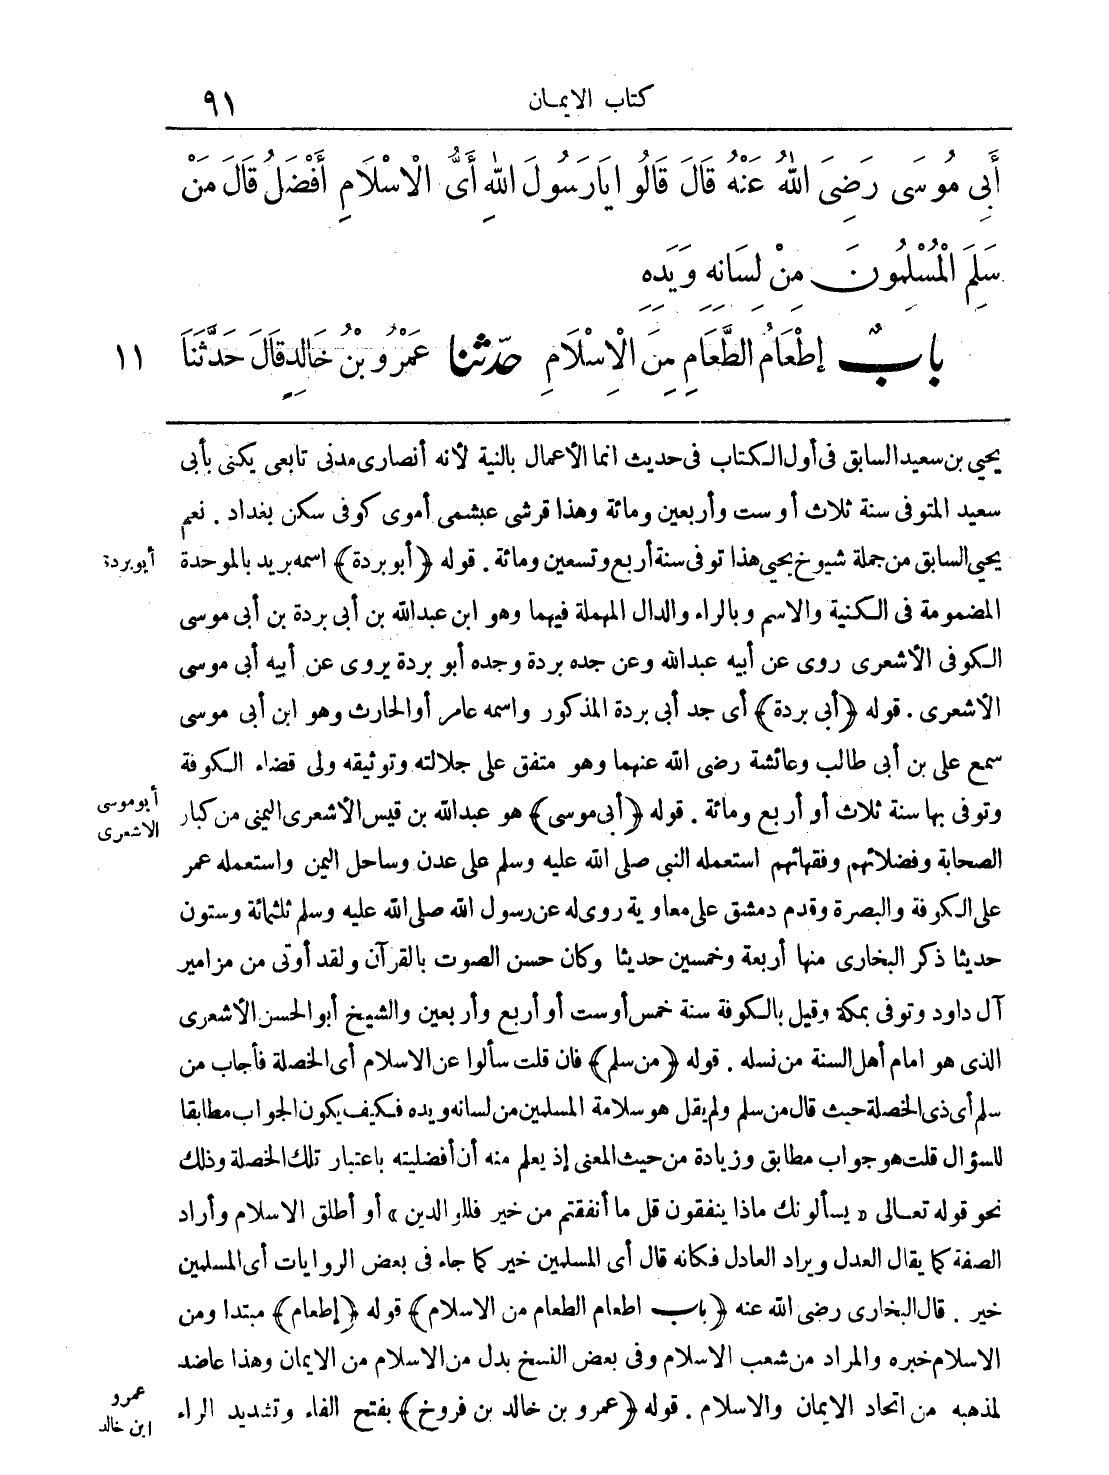 كتاب الايمان ٩١
أَبِى مُوسَى رَضِىَ اللهُ عَنْهُ قَالَ قَالُوا يَارَسُولَ اللهِ أَىُّ الْاِسْلَامِ أَفْضَلُ قَالَ مَنْ
سَلِمَ الْمُسْلِمُونَ مِنْ لِسَانِهِ وَيَدِهِ
بابٌ إِطْعَامُ الطَّعَامِ مِنَ الْاِسْلَامِ حدّثنا عَمْرُو بْنُ خَالِدٍ قَالَ حَدَّثَنَا ١١
يحيي بن سعيد السابق فى أول الكتاب فى حديث انما الأعمال بالنية لأنه أنصارى مدنى تابعى يكنى بأبى
سعيد المتوفى سنة ثلاث أو ست وأربعين ومائة وهذا قرشى عبشمى أموى كوفى سكن بغداد . نعم
يحيي السابق من جملة شيوخ يحيي هذا توفى سنة أربع وتسعين ومائة . قوله ﴿أبو بردة﴾ اسمه بريد بالموحدة أبو بردة
المضمومة فى الكنية والاسم وبالراء والدال المهملة فيهما وهو ابن عبدالله بن أبى بردة بن أبى موسى
الكوفى الأشعرى روى عن أبيه عبدالله وعن جده بردة وجده أبو بردة يروى عن أبيه أبى موسى
الأشعرى . قوله ﴿أبى بردة﴾ أى جد أبى بردة المذكور واسمه عامر أو الحارث وهو ابن أبى موسى
سمع على بن أبى طالب وعائشة رضى الله عنهما وهو متفق على جلالته وتوثيقه ولى قضاء الكوفة
وتوفى بها سنة ثلاث أو أربع ومائة . قوله ﴿أبى موسى﴾ هو عبدالله بن قيس الأشعرى اليمنى من كبار أبو موسى الاشعرى
الصحابة وفضلائهم وفقهائهم استعمله النبى صلى الله عليه وسلم على عدن وساحل اليمن واستعمله عمر
على الكوفة والبصرة وقدم دمشق على معاوية روى له عن رسول الله صلى الله عليه وسلم ثلثمائة وستون
حديثا ذكر البخارى منها أربعة وخمسين حديثا وكان حسن الصوت بالقرآن ولقد أوتى من مزامير
آل داود وتوفى بمكة وقيل بالكوفة سنة خمس أو ست أو أربع وأربعين والشيخ أبو الحسن الأشعرى
الذى هو امام أهل السنة من نسله . قوله ﴿من سلم﴾ فان قلت سألوا عن الاسلام أى الخصلة فأجاب من
سلم أى ذى الخصلة حيث قال من سلم ولم يقل هو سلامة المسلمين من لسانه ويده فكيف يكون الجواب مطابقا
للسؤال قلت هو جواب مطابق وزيادة من حيث المعنى إذ يعلم منه أن أفضليته باعتبار تلك الخصلة وذلك
نحو قوله تعالى « يسألونك ماذا ينفقون قل ما أنفقتم من خير فللوالدين » أو أطلق الاسلام وأراد
الصفة كما يقال العدل ويراد العادل فكانه قال أى المسلمين خير كما جاء فى بعض الروايات أى المسلمين
خير . قال البخارى رضى الله عنه ﴿باب اطعام الطعام من الاسلام﴾ قوله ﴿إطعام﴾ مبتدا ومن
الاسلام خبره والمراد من شعب الاسلام وفى بعض النسخ بدل من الاسلام من الايمان وهذا عاضد
لمذهبه من اتحاد الايمان والاسلام . قوله ﴿عمرو بن خالد بن فروخ﴾ بفتح الفاء وتشديد الراء عمرو ابن خالد